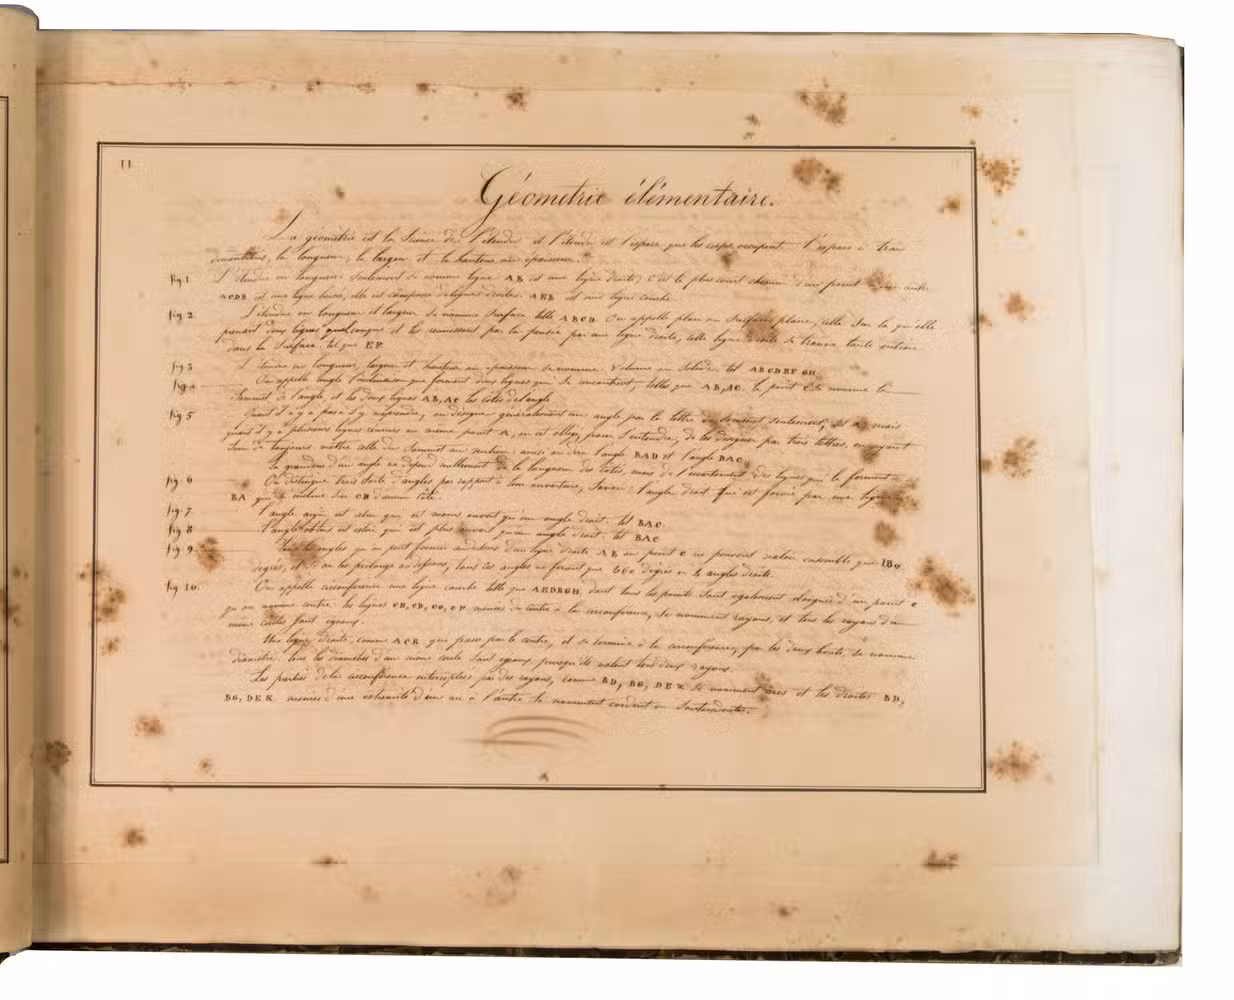 11
Géometrie élémentaire.
La géométrie est la Science de l'étendue et l'étendue est l'espace que les corps occupent l'espace a trois
dimentions, la longueur, la largeur et la hauteur ou épaisseur.
fig. 1 L'étendue en longueur seulement se nomme ligne AB est une ligne droite; c'est le plus court chemin d'un point à un autre
ACDB est une ligne brisée, elle est composée de lignes droites. AEB est une ligne courbe.
fig. 2. L'étendue en longueur et largeur se nomme Surface telle ABCD. On appelle plan ou Surface plane, celle Sur la qu'elle
prenant deux lignes quelconques et les réunissant par la pensée par une ligne droite, cette ligne droite se trouve toute entière
dans la Surface. tel que EF
fig 3 L'étendue en longueur, largeur et hauteur ou épaisseur se nomme Volume ou Solide. tel ABCDEFGH.
fig. 4 On appelle angle l'inclinaison que forment deux lignes qui Se rencontrent, telles que AB, AC. le point se nomme le
Sommet de l'angle, et les deux lignes AB, AC les côtés de l'angle
fig. 5 Quand il n'y a pas à s'y méprendre, on désigne généralement un angle par la lettre du Sommet seulement, tel A; mais
quand il y a plusieurs lignes réunies au même point A, on est obligé, pour s'entendre, de les désigner par trois lettres, en ayant
Soin de toujours mettre celle du Sommet au milieu: ainsi on dira l'angle BAD et l'angle DAC.
La grandeur d'un angle ne dépend nullement de la longueur des côtés, mais de l'écartement des lignes qui le forment
fig. 6 On distingue trois Sorte d'angles par rapport à leur ouverture, Savoir: l'angle droit que est formé par une ligne
BA qui n'incline Sur CB d'aucun côté.
fig. 7 l'angle aigu est celui qui est moins ouvert qu'un angle droit. tel BAC.
fig 8 l'angle obtus est celui qui est plus ouvert qu'un angle droit. tel BAC
fig. 9. Tous les angles qu'on peut former au dessus d'un ligne droite AB au point C ne peuvent valoir ensemble que 180
degrés, et Si on les prolonge au dessous, tous ces angles ne feront que 360 degrés ou 4 angles droits.
fig. 10. On appelle circonférence une ligne courbe telle que AEDBGH. dont tous les points Sont également éloignés d'un point C
qu'on nomme centre. les lignes CB, CD, CG, CF menées du centre à la circonférence, se nomment rayons, et tous les rayons d'un
même cercles Sont égaux.
Une ligne droite, comme ACB qui passe par le centre, et se termine à la circonférence, par les deux bouts, se nomme
diamètre. tous les diamètres d'un même cercle Sont égaux puisqu'ils valent tous deux rayons.
Les parties de la circonférence interceptées par des rayons, comme BD, BG, DE &. se nomment arcs et les droites BD,
BG, DE &. menées d'une extrémité d'un arc à l'autre Se nomment cordent ou Soutendantes.